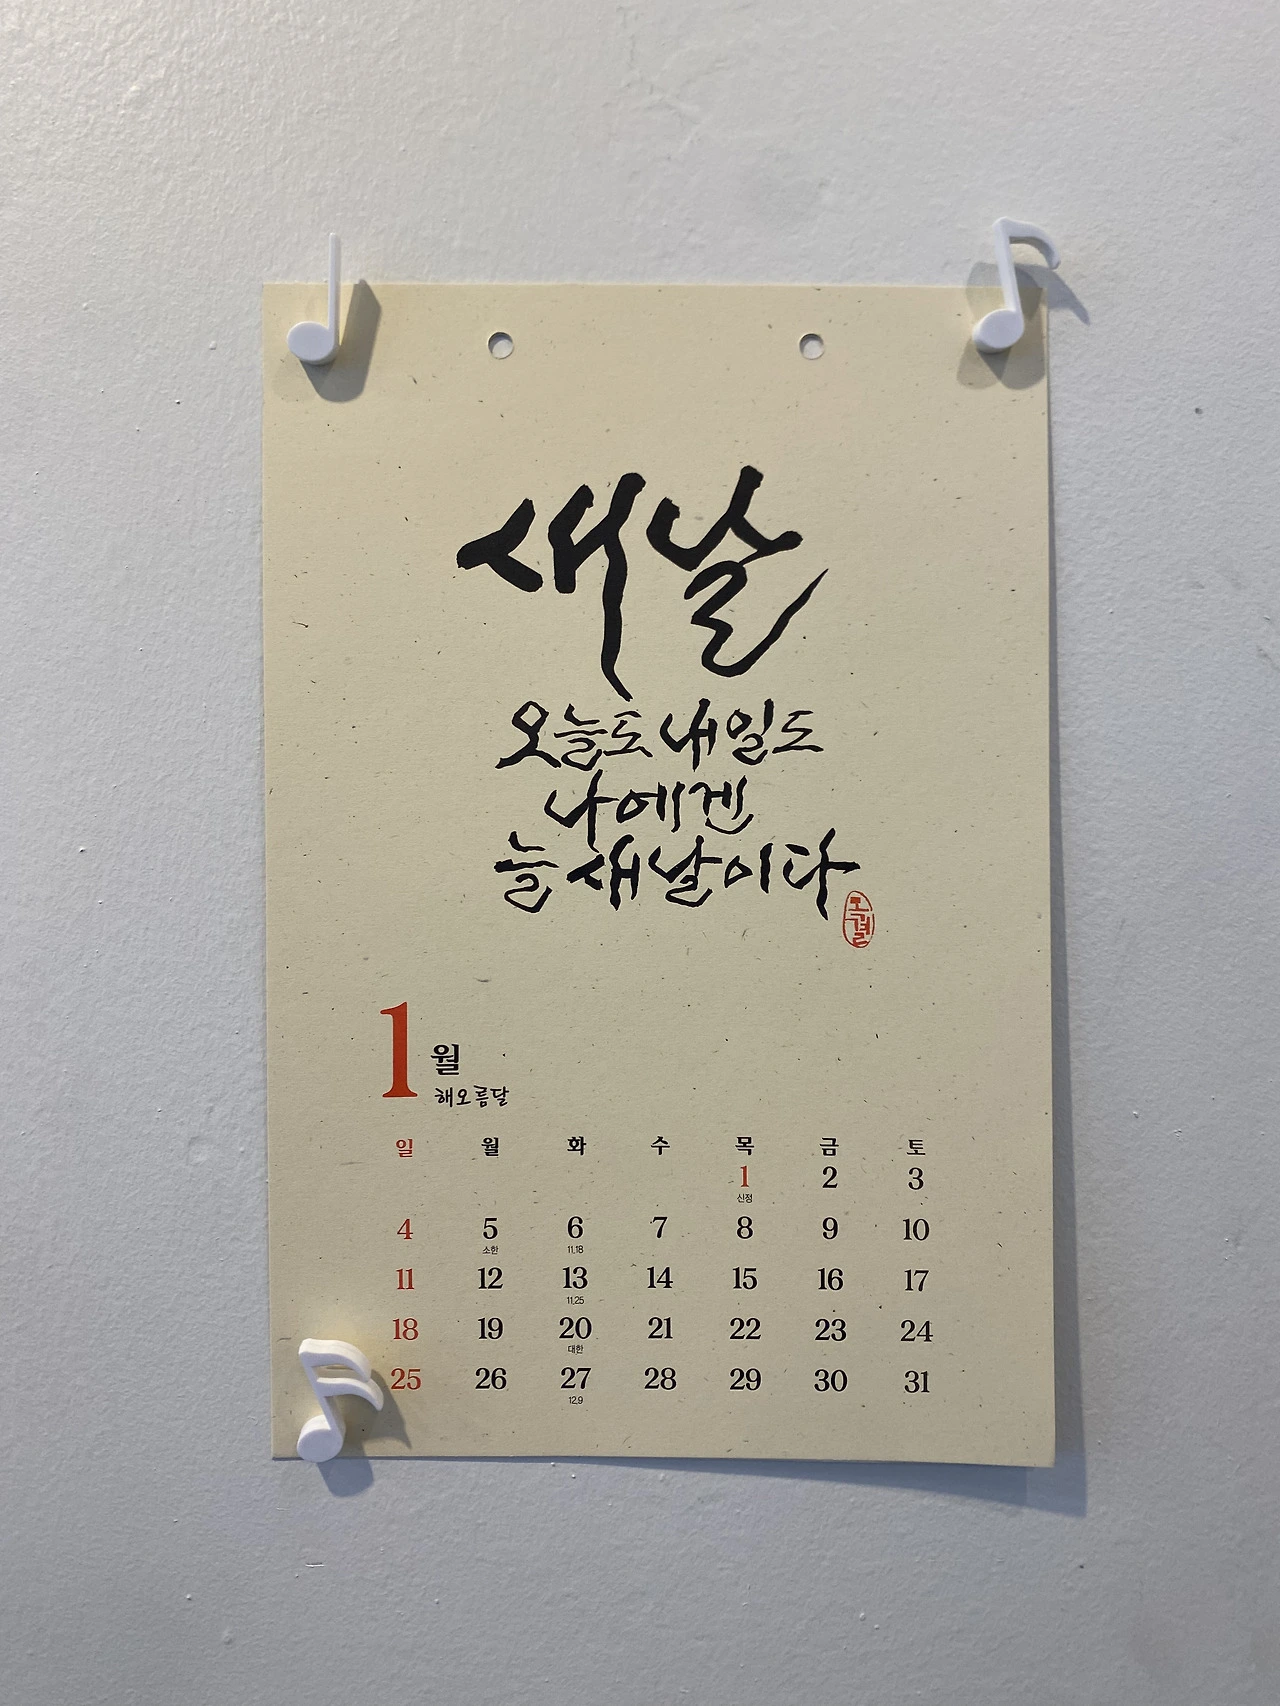 새날
오늘도 내일도
나에겐
늘 새날이다
1월
해오름달
일 월 화 수 목 금 토
1 2 3
신정
4 5 6 7 8 9 10
소한 11.18
11 12 13 14 15 16 17
11.25
18 19 20 21 22 23 24
대한
25 26 27 28 29 30 31
12.9